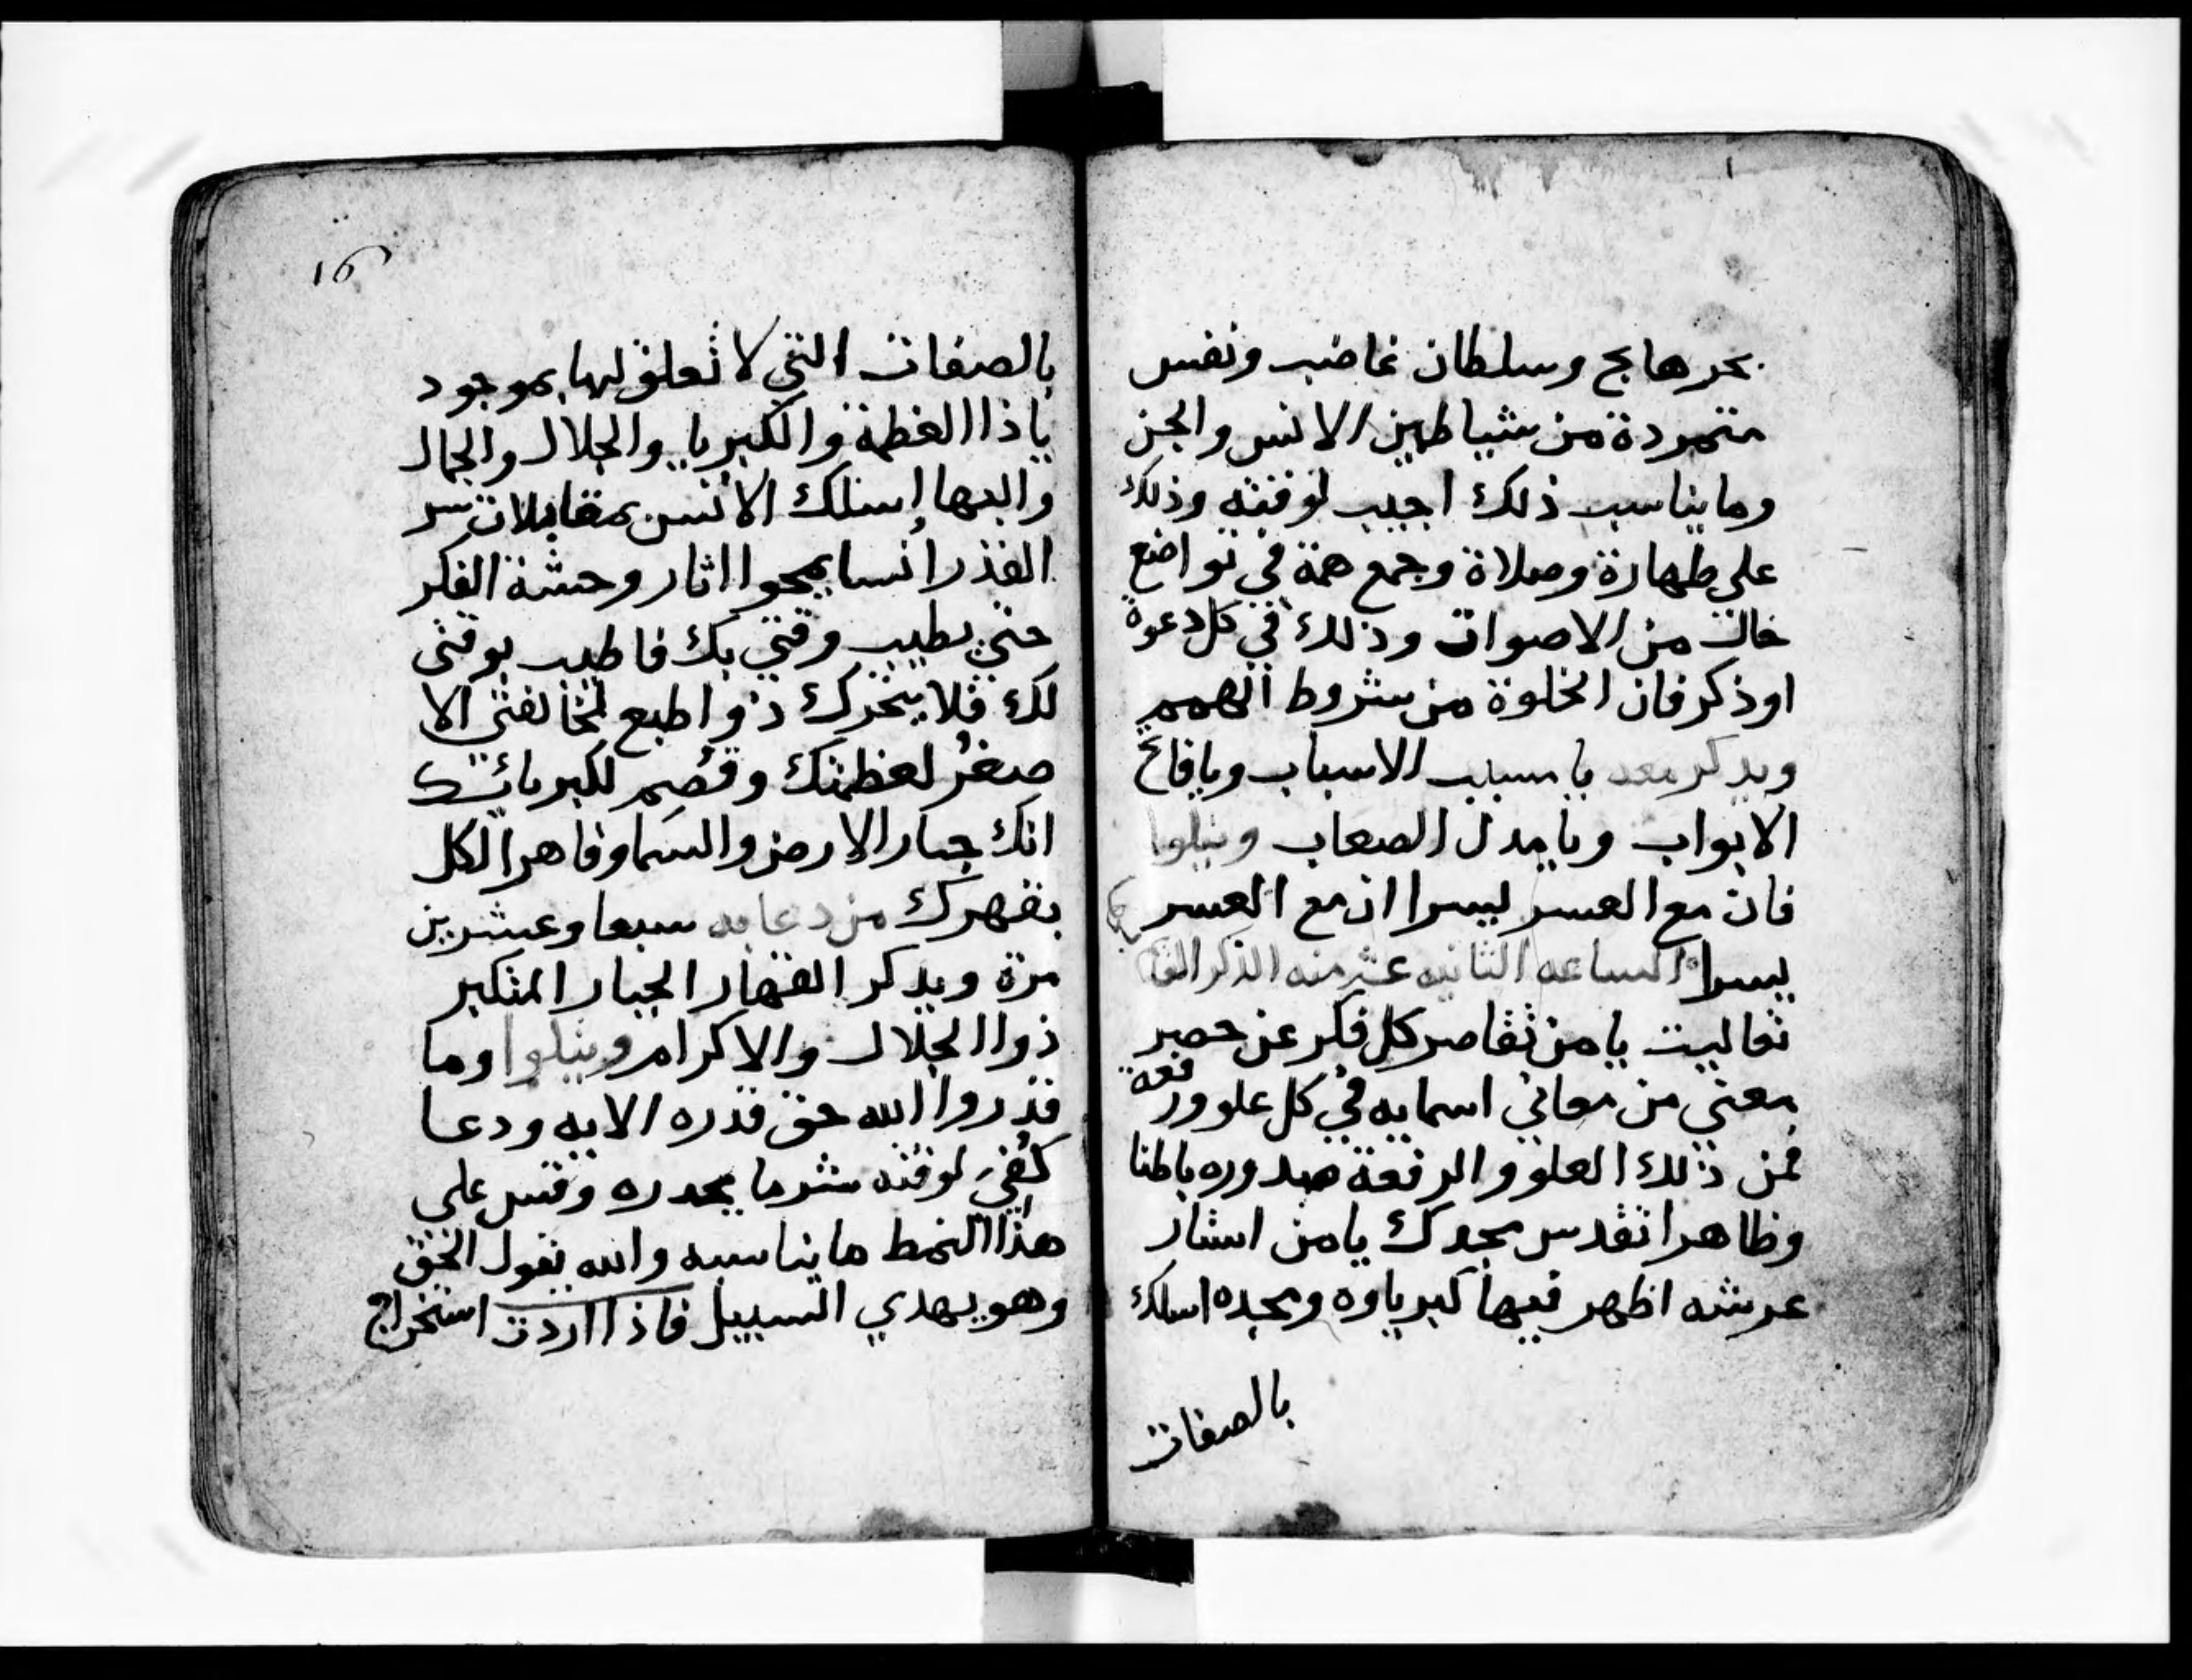 بحر هايج وسلطان غاضب ونفس
متمردة من شياطين الانس والجن
وما يناسب ذلك اجيب لوقته وذلك
على طهارة وصلاة وجمع همة في تواضع
خال من الاصوات وذلك في كل دعوة
اوذكر فان الخلوة من شروط الهمم
ويذكر معه يا مسبب الاسباب ويا فاتح
الابواب ويا مذل الصعاب ويتلوا
فان مع العسر يسرا ان مع العسر
يسرا الساعه الثانيه عشر منه الذكر
تعاليت يا من تقاصر كل فكر عن حصر
معنى من معاني اسمايه في كل علو ورفعة
فمن ذلك العلو والرفعة صدوره باطنا
وظاهرا تقدس مجدك يا من استار
عرشه اظهر فيها كبرياوه ومجده اسلك
بالصفات
16
بالصفات التي لا تعلق لها بموجود
يا ذا العظمة والكبريا والجلال والجمال
والبها اسئلك الانس بمقابلات سر
القدر انسا يمحوا اثار وحشة الفكر
حتى يطيب وقتي بك فاطيب بوقتى
لك فلا يتحرك ذو اطبع لمخالفتى الا
صغر لعظمتك وقصم لكبريائك
انك جبار الارض والسما وقاهر الكل
بقهرك من دعا به سبعا وعشرين
مرة ويذكر القهار الجبار المتكبر
ذوا الجلال والاكرام ويتلوا وما
قدروا الله حق قدره الايه ودعا
كفي لوقته شر ما يحذره وقس على
هذا النمط ما يناسبه والله يقول الحق
وهو يهدي السبيل فاذا اردت استخراج